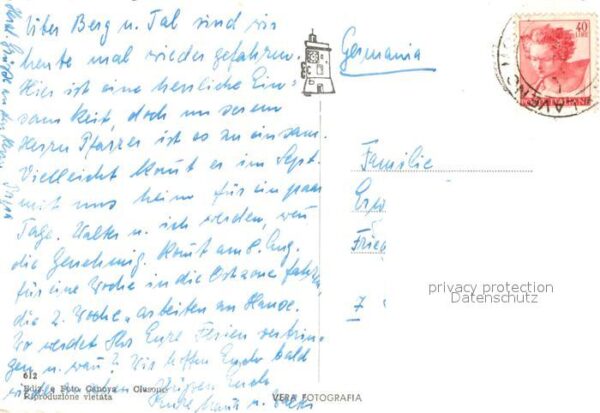 Über Berg u. Tal sind wir
heute mal wieder gefahren.
Hier ist eine herrliche Ein-
samkeit, doch unserem
Herrn Pfarrer ist es zu einsam.
Vielleicht kommt er im Sept.
mit uns heim für ein paar
Tage. Walter u. ich werden, wenn
die Genehmig. kommt am 8. Aug.
für eine Woche in die Ostzone fahren,
die 2. Woche arbeiten am Hause.
Wo werdet Ihr Eure Ferien verbrin-
gen u. wann? Wir hoffen Euch bald
Grüßen Euch
Eure u.
Herzl. Grüße an
Germania
40
LIRE
Familie
7
privacy protection
Datenschutz
612
Ediz. e Foto Canova - Clusone
Riproduzione vietata
VERA FOTOGRAFIA